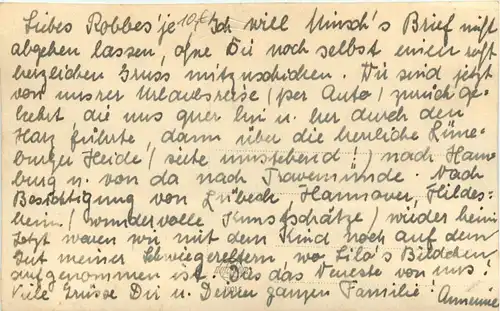 Liebes Robbes'je, Ich will Minsch's Brief nicht
abgehen lassen, ohne Dir noch selbst einen recht
herzlichen Gruss mitzuschicken. Wir sind jetzt
von unsrer Urlaubsreise (per Auto) zurückge-
kehrt, die uns quer hin u. her durch den
Harz führte, dann über die herrliche Lüne-
burger Heide (siehe umstehend!) nach Ham-
burg u. von da nach Travemünde. Nach
Besichtigung von Lübeck, Hannover, Hildes-
heim (wundervolle Kunstschätze) wieder heim
Jetzt waren wir mit dem Kind noch auf dem
Gut meiner Schwiegereltern, wo Lilo's Bildchen
aufgenommen ist. Dies das Neueste von uns!
Viele Grüsse Dir u. Deiner ganzen Familie! Annemie